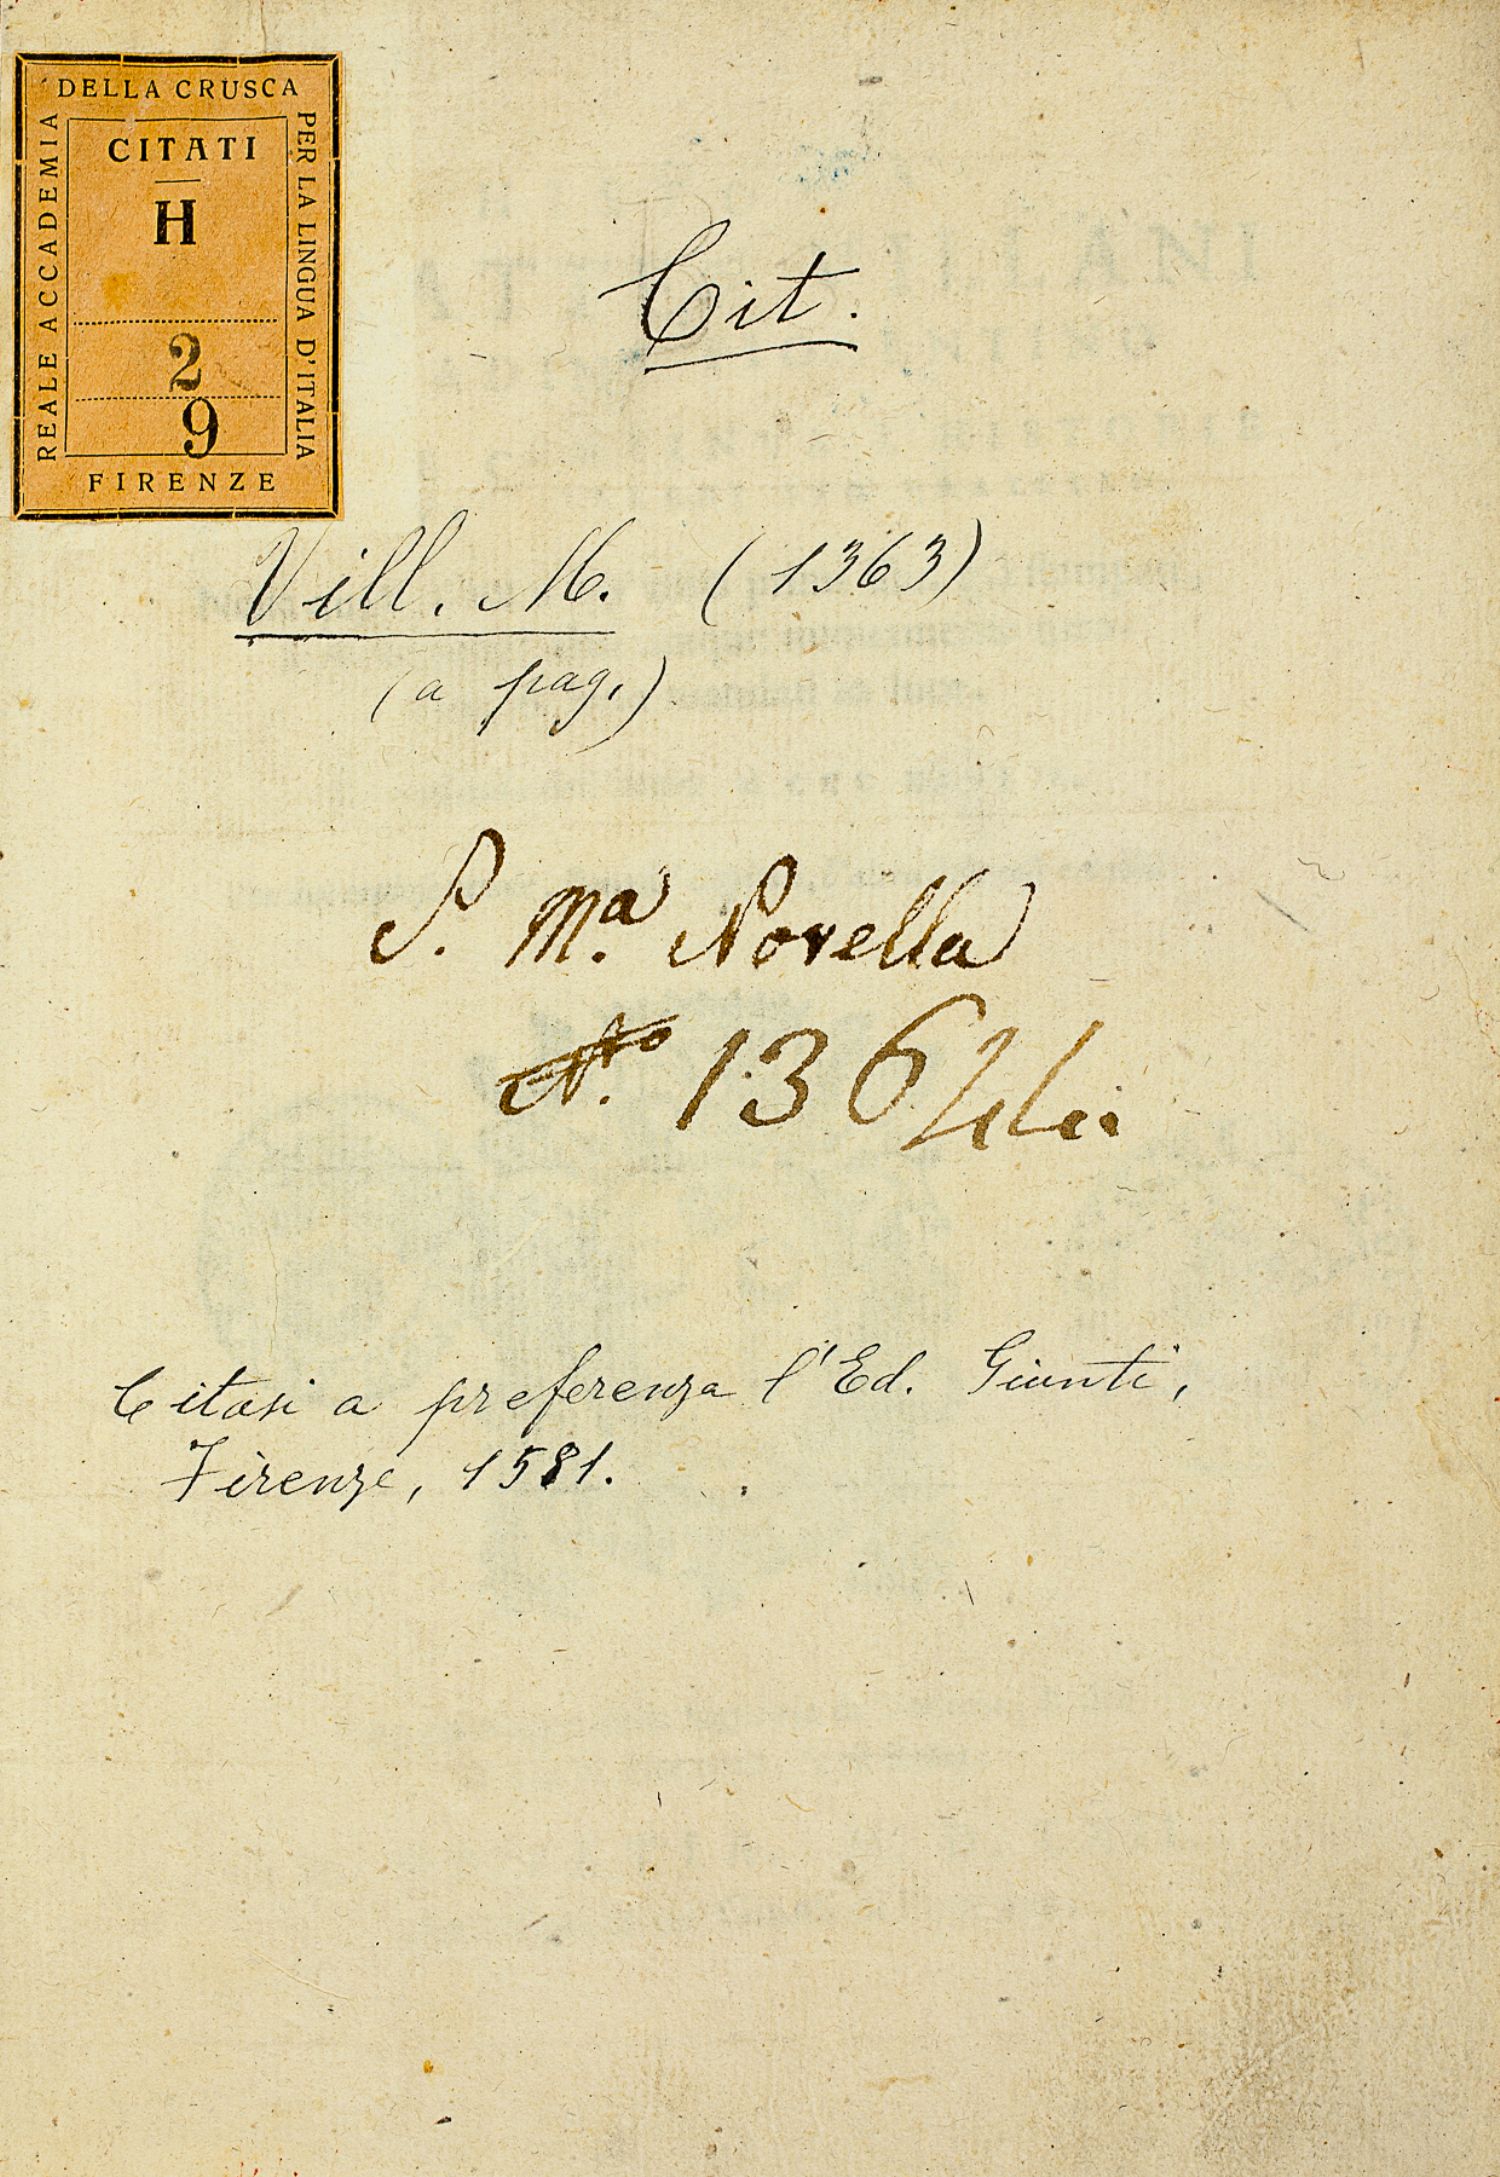 DELLA CRUSCA
REALE ACCADEMIA
PER LA LINGUA D'ITALIA
CITATI
H
2
9
FIRENZE
Cit.
Vill. M. (1363)
(a pag.)
S. Mª. Novella
Nº. 136
Citasi a preferenza l'Ed. Giunti,
Firenze, 1581.